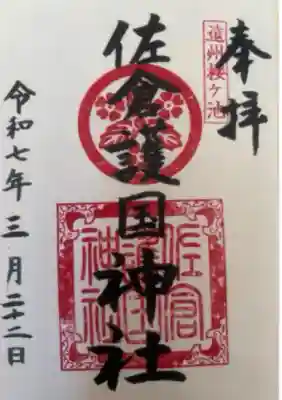 奉拝
遠州桜ヶ池
佐倉護国神社
令和七年三月二十二日